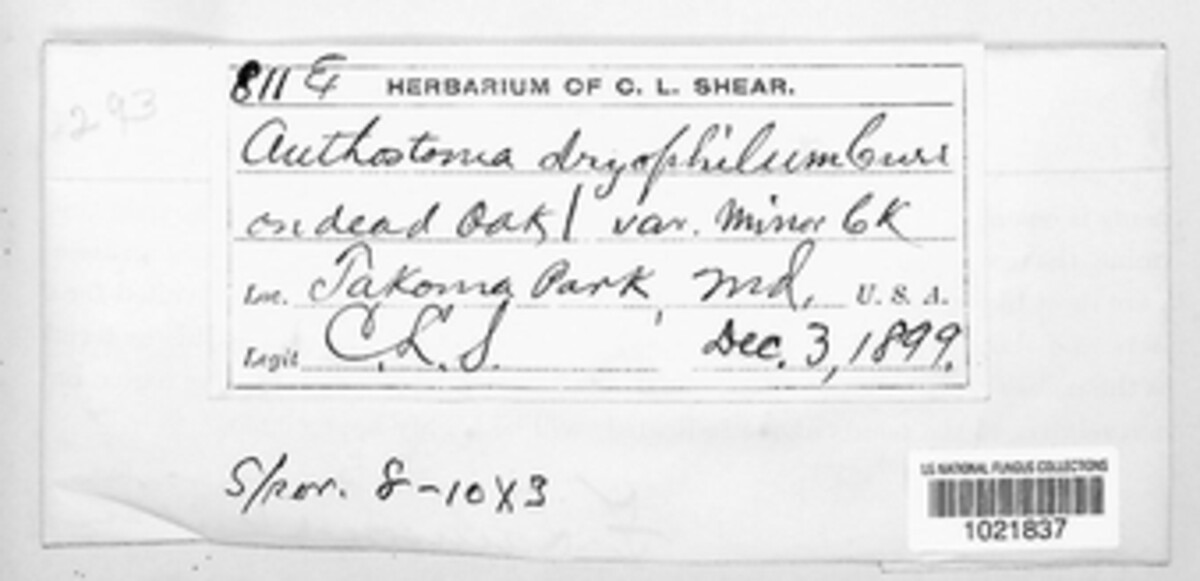 .293
811 E
HERBARIUM OF C. L. SHEAR.
Anthostoma dryophilum Curr
on dead Oak! var. minor CK
Loc. Takoma Park, Md, U. S. A.
Legit C.L.S. Dec. 3, 1899.
Spor. 8-10X3
US NATIONAL FUNGUS COLLECTIONS
1021837